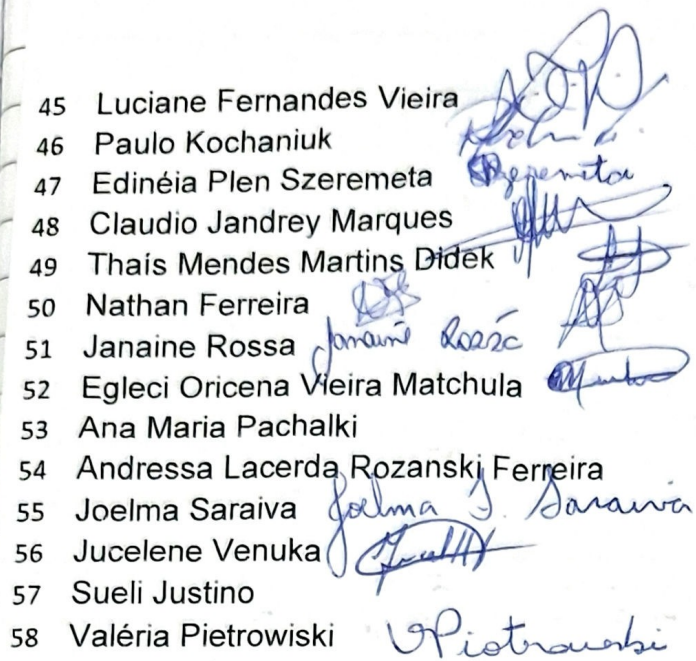 45 Luciane Fernandes Vieira
46 Paulo Kochaniuk
47 Edinéia Plen Szeremeta Szeremeta
48 Claudio Jandrey Marques
49 Thaís Mendes Martins Didek
50 Nathan Ferreira
51 Janaine Rossa Janaine
52 Egleci Oricena Vieira Matchula
53 Ana Maria Pachalki
54 Andressa Lacerda Rozanski Ferreira
55 Joelma Saraiva Joelma S. Saraiva
56 Jucelene Venuka
57 Sueli Justino
58 Valéria Pietrowiski VPiotrowski